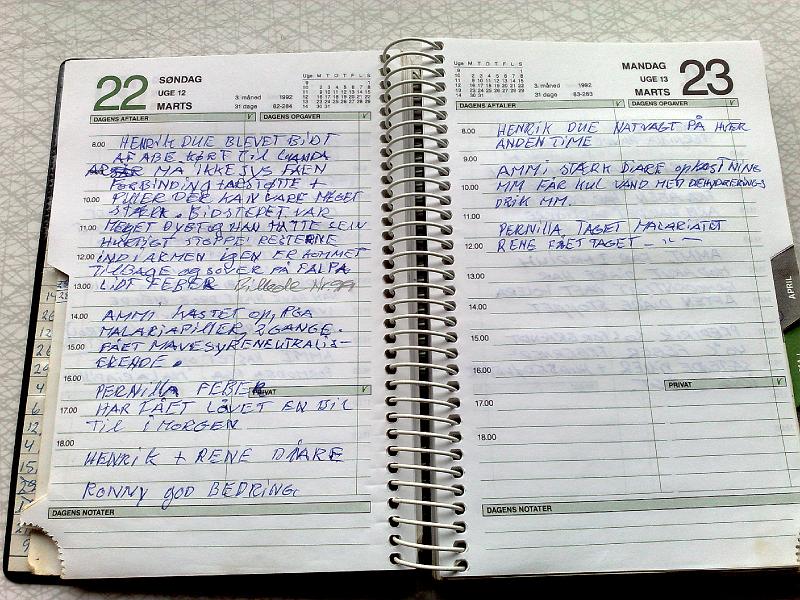 22
SØNDAG
UGE 12
MARTS
3. måned 1992
31 dage 82-284
Uge M T O T F L S
DAGENS AFTALER V
DAGENS OPGAVER V
8.00
HENRIK DUE BLEVET BIDT
AF ABE. KØRT TIL LUANDA
MÅ IKKE SYS FÅEN
FORBINDING + +
10.00
PILLER DER KAN VARE MEGET
STÆRK. BIDSTEDET VAR
11.00
MEGET DYBT og HAN MÅTTE SELV
HURTIGT STOPPE RESTERNE
12.00
IND I ARMEN IGEN ER KOMMET
TILBAGE og SOVER PÅ
13.00
LIDT FEBER Billede Nr.
14.00
AMMI KASTET op, PGA
MALARIAPILLER, 2 GANGE.
15.00
FÅET MAVESYRENEUTRALIS-
ERENDE.
16.00
PERNILLA FEBER
PRIVAT V
17.00
HAR FÅET LOVET EN BIL
TIL I MORGEN
18.00
HENRIK + RENE DIARE
RONNY GOD BEDRING
DAGENS NOTATER
MANDAG
UGE 13
MARTS
23
Uge M T O T F L S
3. måned 1992
31 dage 83-283
DAGENS AFTALER V
DAGENS OPGAVER V
8.00
HENRIK DUE NATVAGT PÅ HVER
ANDEN TIME
9.00
AMMI STÆRK DIARE opKASTNING
10.00
MM FÅR KUL VAND MED DEHYDRERINGS
DRIK MM.
11.00
PERNILLA TAGET MALARIATET
12.00
RENE FÅET TAGET — " —
13.00
14.00
15.00
16.00
PRIVAT V
17.00
18.00
DAGENS NOTATER
APRIL